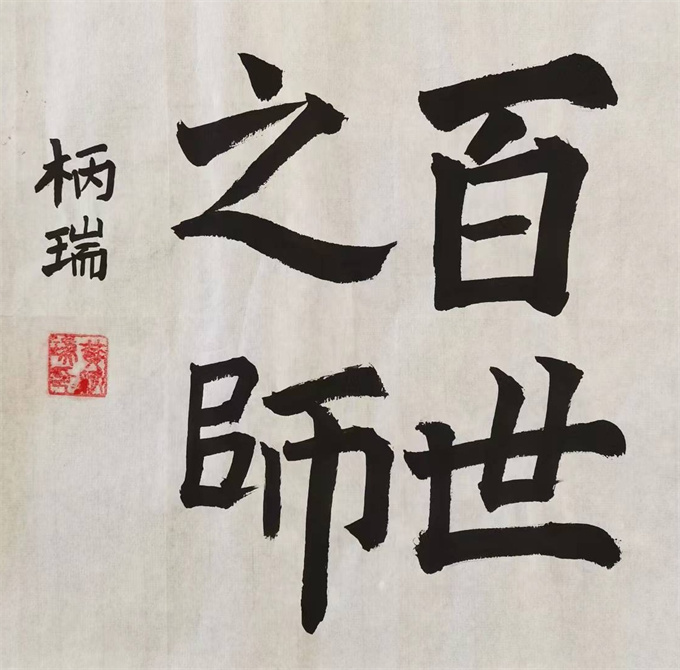 百世
之師
柄瑞